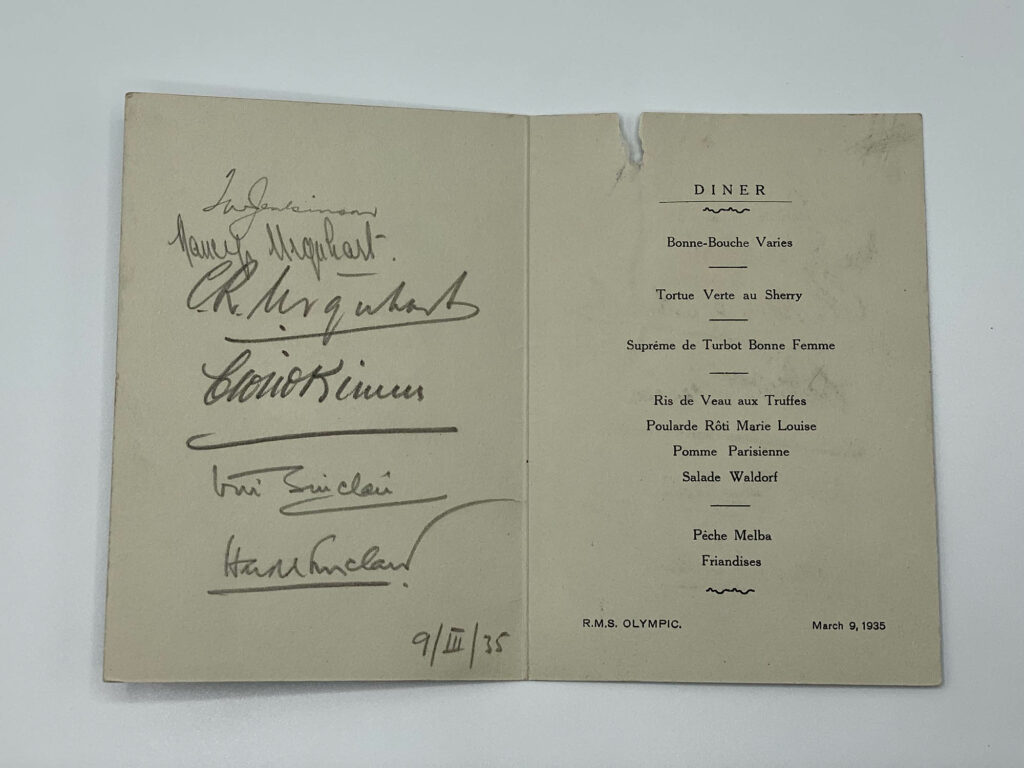 Jenkinson
Nancy Urquhart.
C.R. Urquhart
Sinclair
Sinclair
9/III/35
DINER
Bonne-Bouche Varies
Tortue Verte au Sherry
Supréme de Turbot Bonne Femme
Ris de Veau aux Truffes
Poularde Rôti Marie Louise
Pomme Parisienne
Salade Waldorf
Pêche Melba
Friandises
R.M.S. OLYMPIC. March 9, 1935